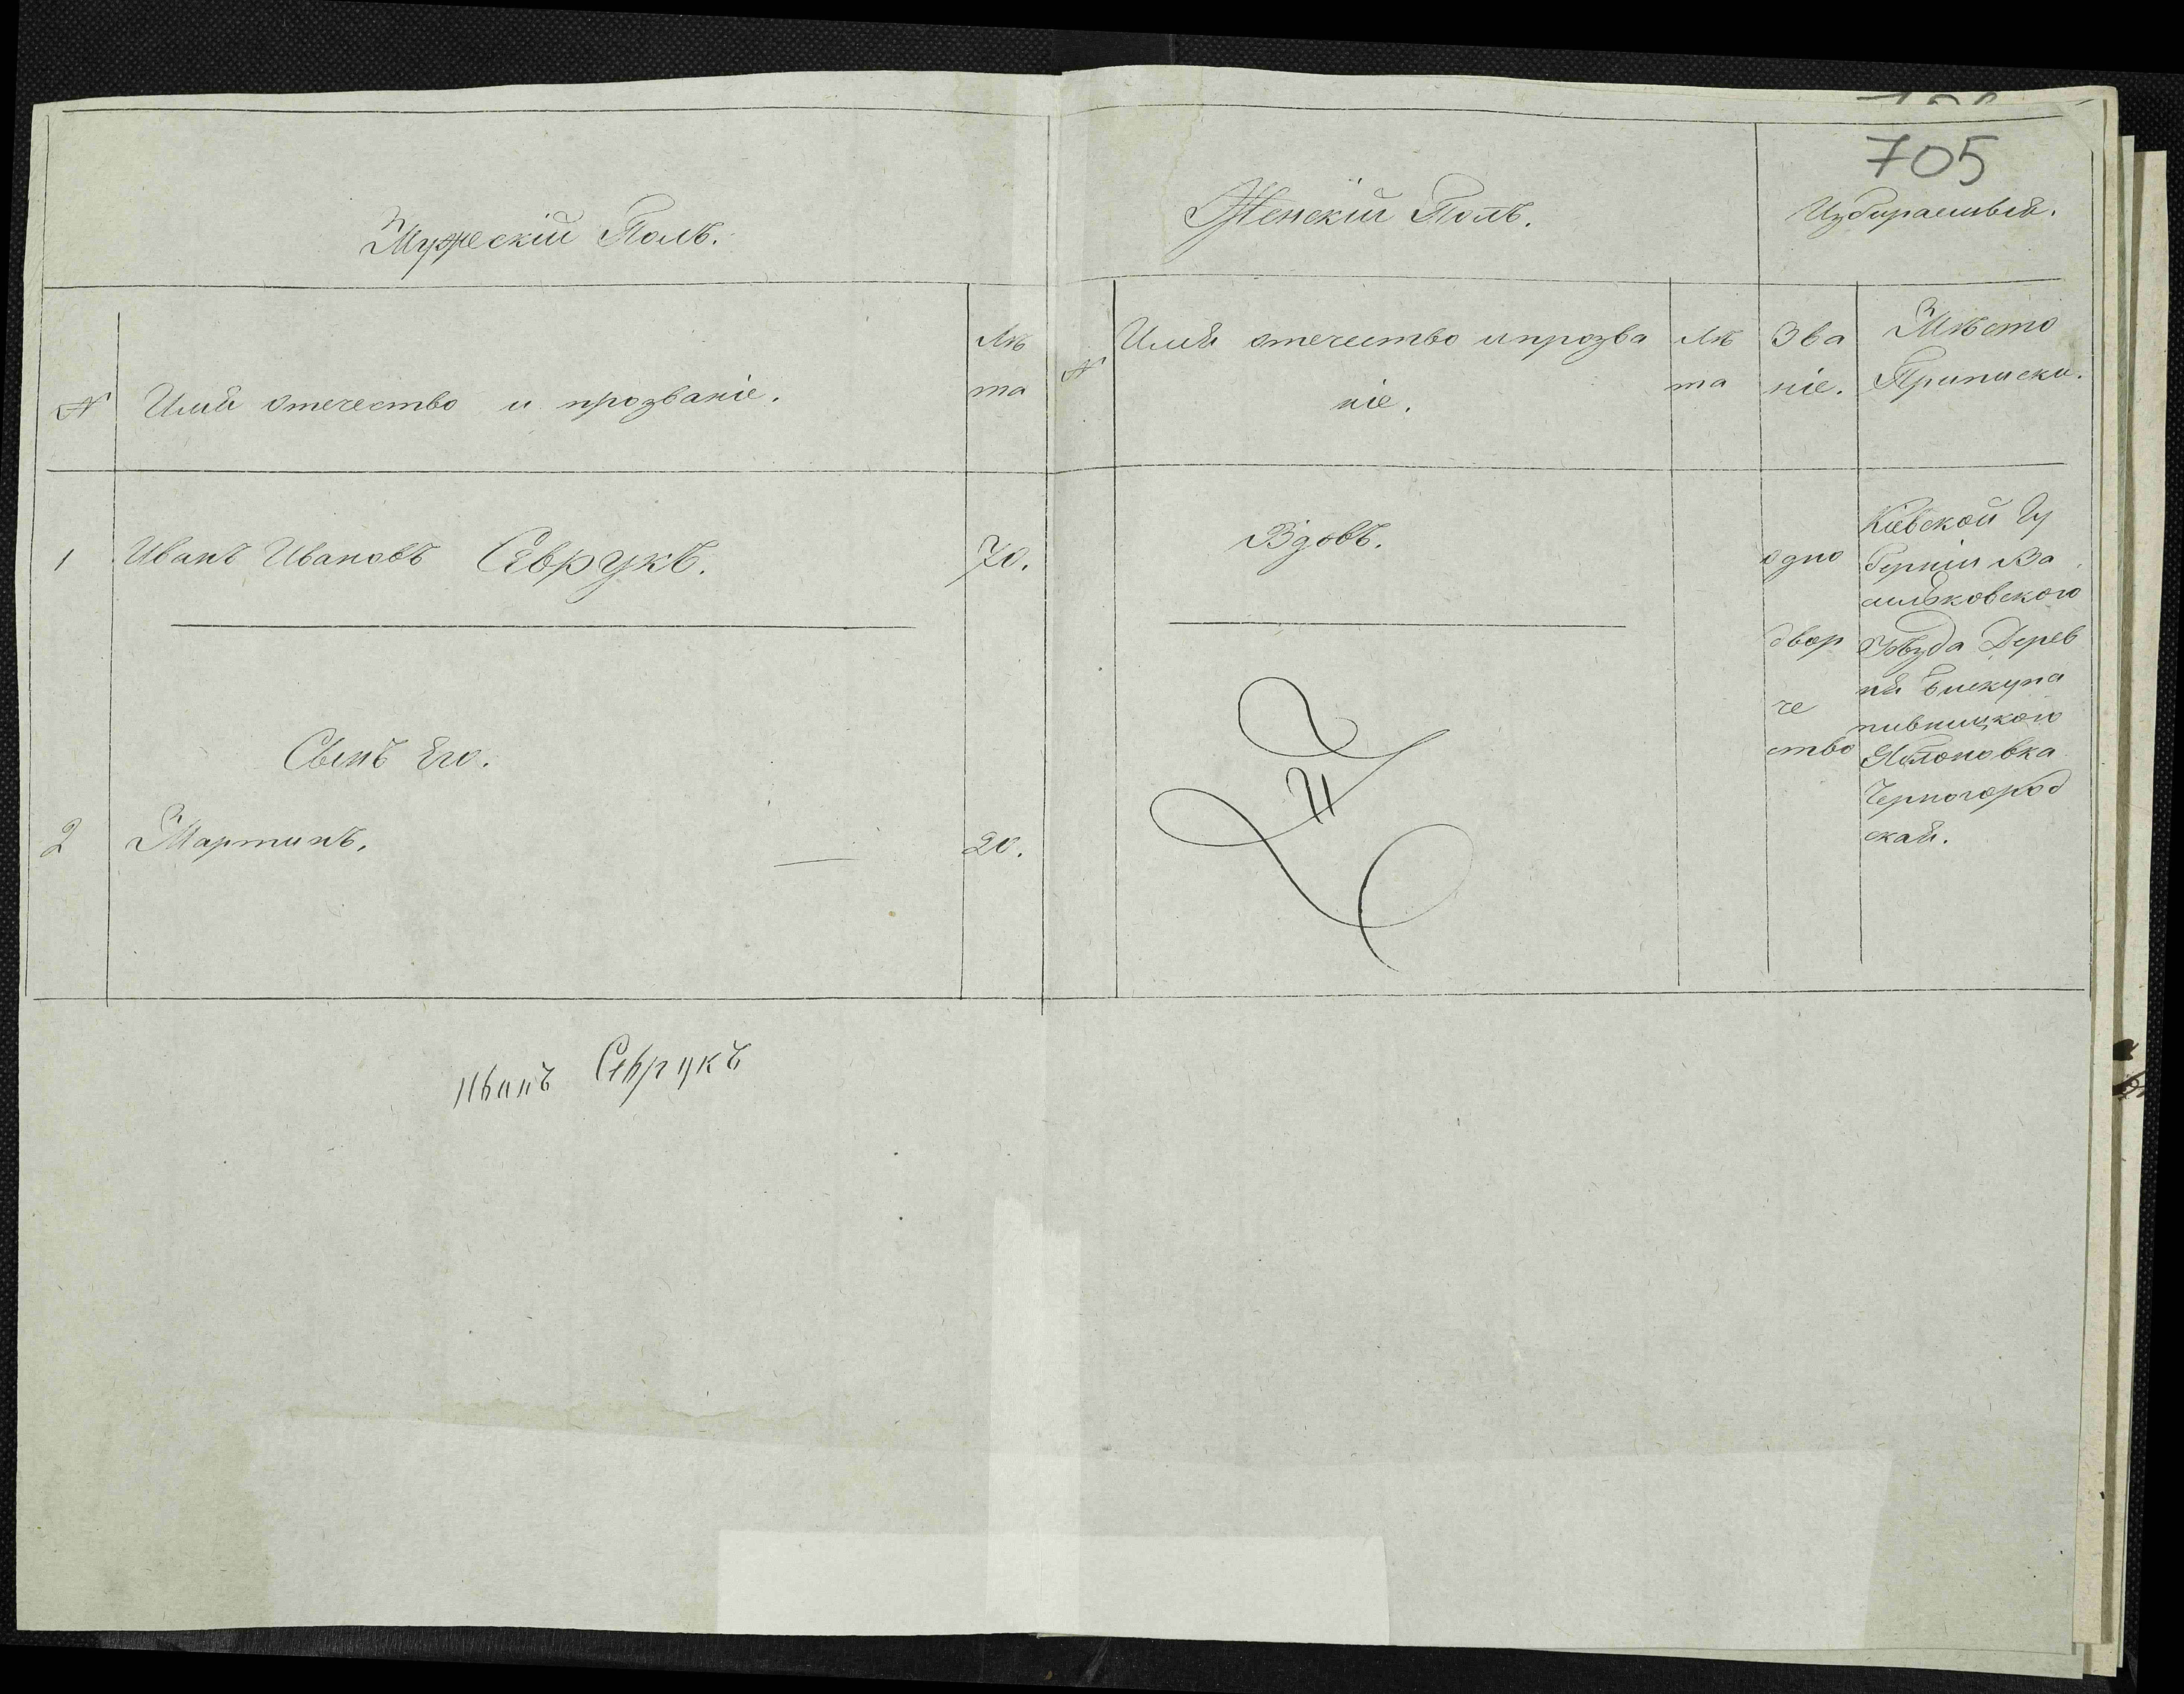 705
Мужескій Полъ.
Женскій Полъ.
Избираемыя.
N
Имя отечество и прозваніе.
Лѣ
та
N
Имя отечество и прозва
ніе.
Лѣ
та
Зва
ніе.
Мѣсто
Приписки.
1
Иванъ Ивановъ Севрукъ.
70.
Вдовъ.
одно
двор
че
ство
Кіевской Гу
берніи Ва
сильковского
Уѣзда Дерев
ня Бискупа
пивницкого
Яблоновка
Черногород
ская.
Сынъ Его.
2
Мартинъ.
20.
Иванъ Севрукъ